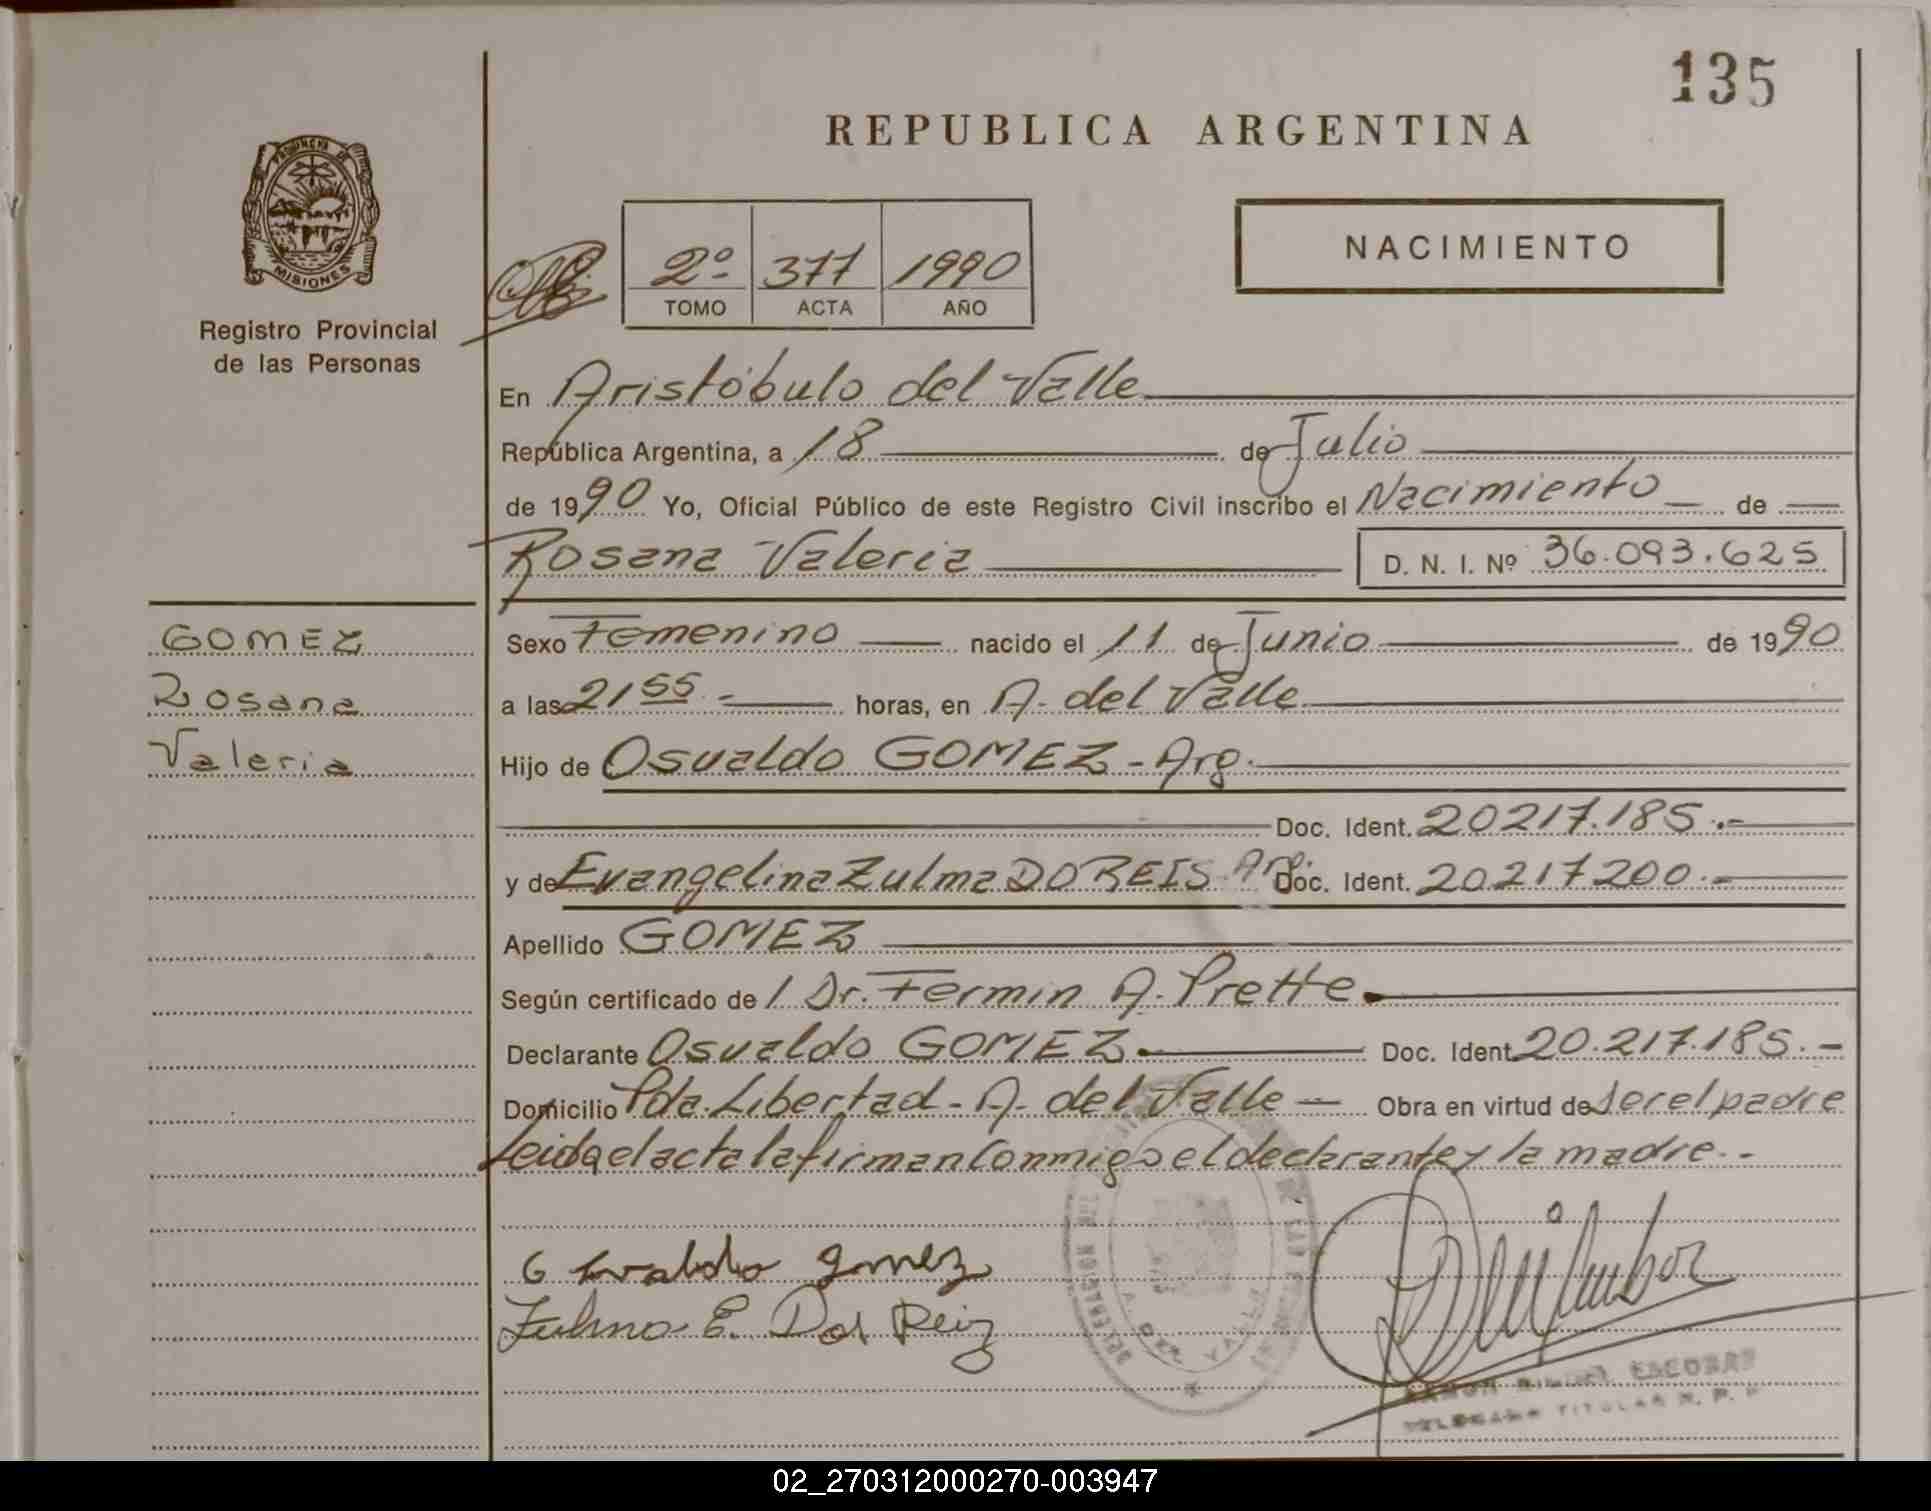 135
REPUBLICA ARGENTINA
PROVINCIA DE
MISIONES
Registro Provincial
de las Personas
2º 377 1990
TOMO ACTA AÑO
NACIMIENTO
En Aristóbulo del Valle
República Argentina, a 18 de Julio
de 1990 Yo, Oficial Público de este Registro Civil inscribo el Nacimiento de
Rosana Valeria D. N. I. Nº 36.093.625
GOMEZ
Rosana
Valeria
Sexo Femenino nacido el 11 de Junio de 1990
a las 21 55 horas, en A. del Valle
Hijo de Osvaldo GOMEZ - Arg.
Doc. Ident. 20217.185.-
y de Evangelina Zulma DO REIS - Arg. Doc. Ident. 20217200.-
Apellido GOMEZ
Según certificado de / Dr. Fermin A. Prette
Declarante Osvaldo GOMEZ Doc. Ident. 20.217.185.-
Domicilio Pda. Libertad - A. del Valle Obra en virtud de ser el padre
Leida el acta la firman conmigo el declarante y la madre.-
Osvaldo gomez
Zulma E. Dos Reis
A. DEL VALLE
RAMON ESCOBAR
DELEGADO TITULAR R. P. P.
02_270312000270-003947